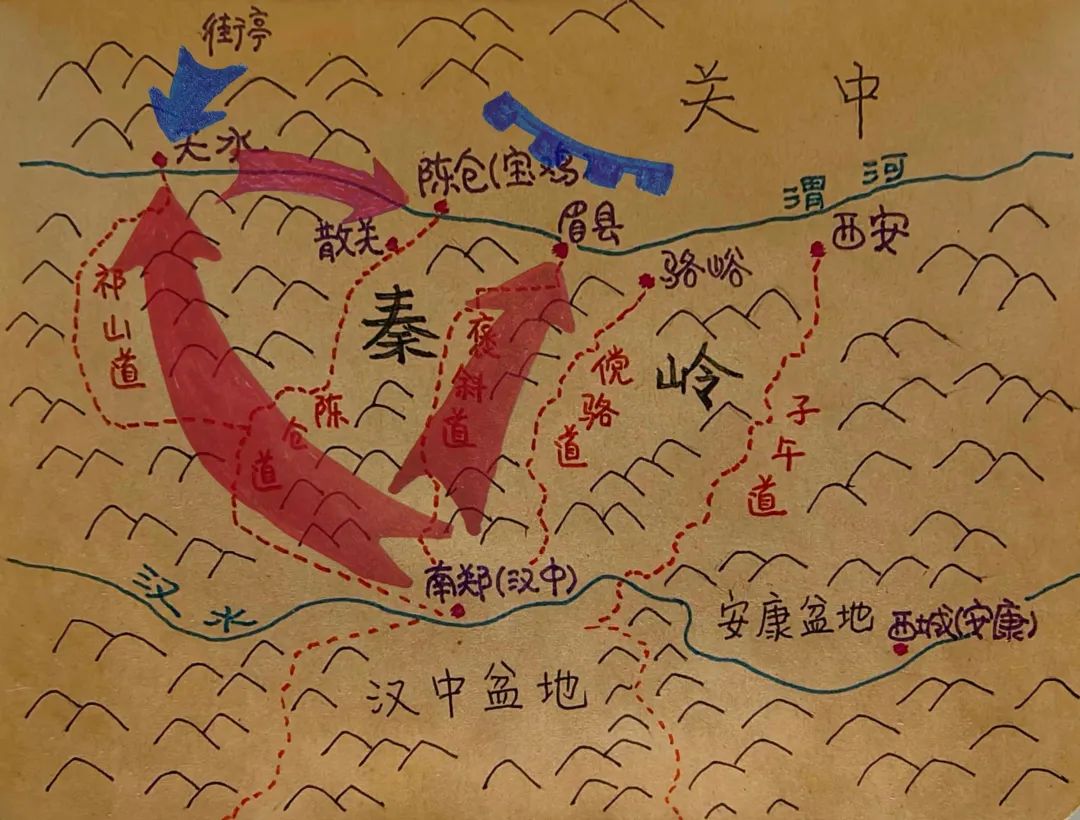 街亭
关中
天水
陈仓(宝鸡
渭河
散关
眉县
骆峪
西安
祁山道
秦岭
褒斜道
傥骆道
陈仓道
子午道
汉水
南郑(汉中)
安康盆地
西城(安康)
汉中盆地